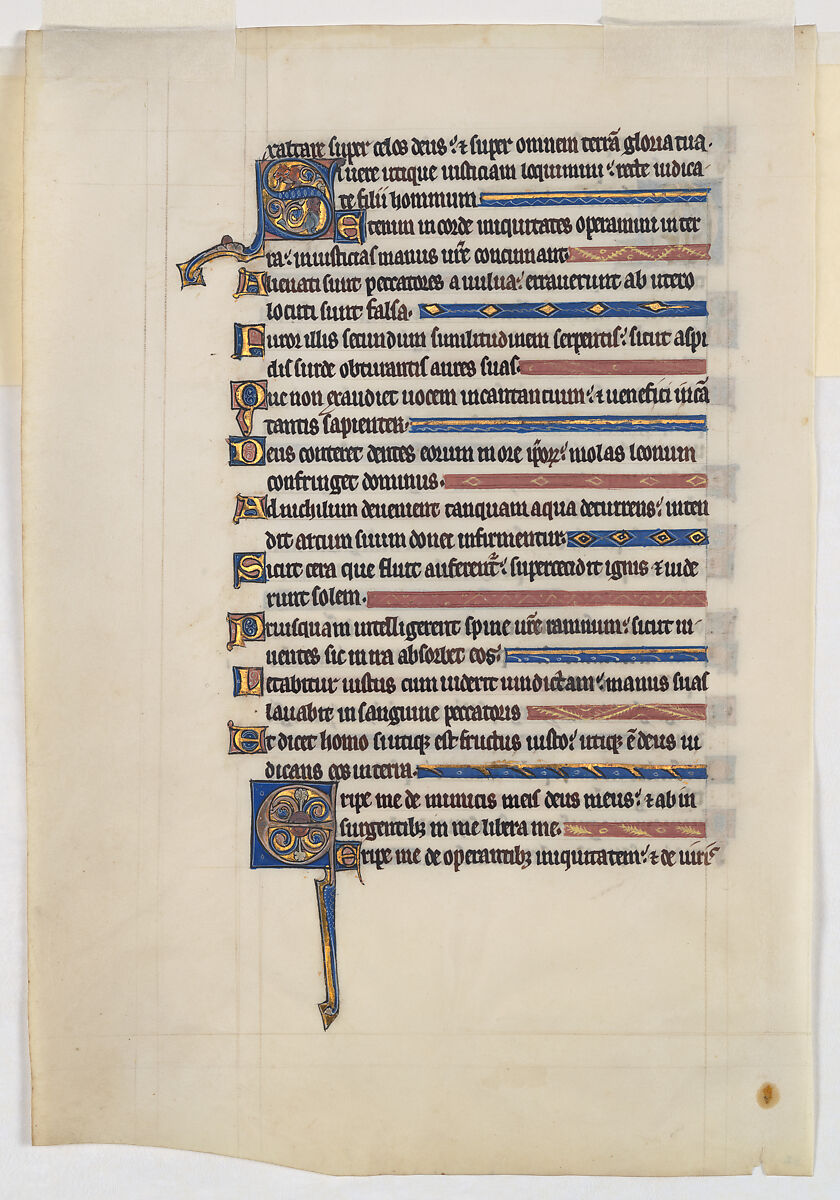 Exaltare super celos deus: & super omnem terrã gloria tua.
Si uere utique iusticiam loquimini: recte iudica
te filii hominum.
Etenim in corde iniquitates operamini in ter
ra: iniusticias manus ur̃e concinnant
Alienati sunt peccatores a uulua: errauerunt ab utero
locuti sunt falsa.
Furor illis secundum similitudinem serpentis: sicut aspi
dis surde obturantis aures suas.
Que non exaudiet uocem incantantium: & uenefici incã
tantis sapienter.
Deus conteret dentes eorum in ore ip̃oꝝ: molas leonum
confringet dominus.
Ad nichilum deuenient tanquam aqua decurrens: inten
dit arcum suum donec infirmentur.
Sicut cera que fluit auferent᷑: supercecidit ignis & uide
runt solem.
Priusquam intelligerent spine ur̃e ramnum: sicut ui
uentes sic in ira absorbet eos.
Letabitur iustus cum uiderit uindictam: manus suas
lauabit in sanguine peccatoris
Et dicet homo si utiqꝫ est fructus iusto: utiqꝫ ẽ deus iu
dicans eos in terra.
Eripe me de inimicis meis deus meus: & ab in
surgentibꝫ in me libera me.
Eripe me de operantibꝫ iniquitatem: & de uiris